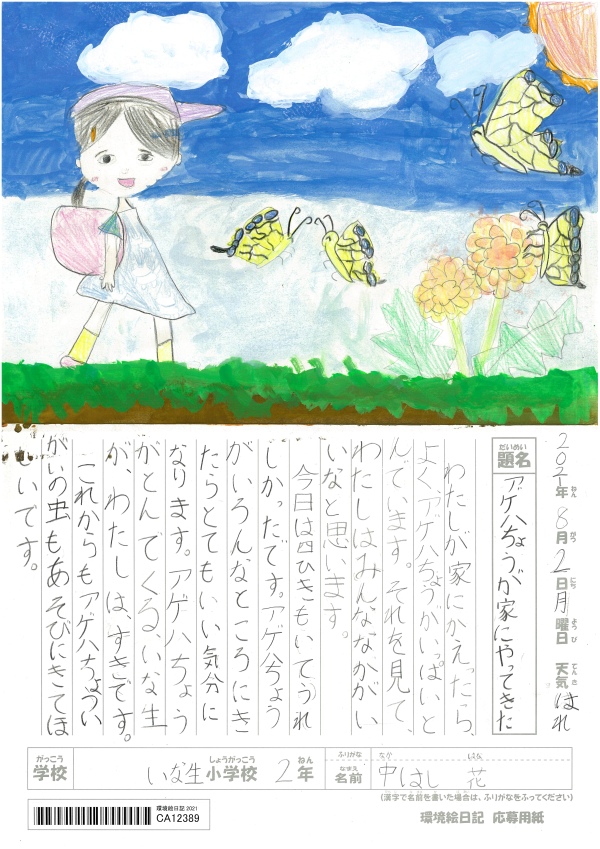 2021年ねん 8月がつ 2日にち 月曜日ようび 天気てんき はれ
だいめい
題名
アゲハちょうが家にやってきた
わたしが家にかえったら、
よくアゲハちょうがいっぱいと
んでいます。それを見て、
わたしはみんななかがい
いなと思います。
今日は四ひきもいてうれ
しかったです。アゲハちょう
がいろんなところにき
たらとてもいい気分に
なります。アゲハちょう
がとんでくる、いな生
が、わたしは、すきです。
これからもアゲハちょうい
がいの虫もあそびにきてほ
しいです。
がっこう
学校
いな生小学校しょうがっこう 2年ねん
ふりがな
なか しな
なまえ
名前
中はし 花
(漢字で名前を書いた場合は、ふりがなをふってください)
環境絵日記 2021
CA12389
環境絵日記 応募用紙